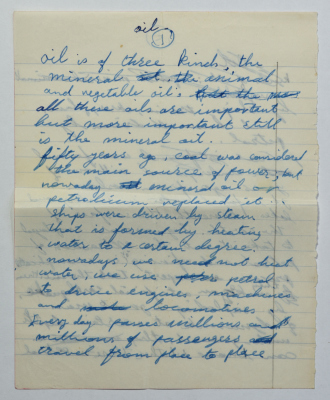 oil
1
oil is of three kinds, the
mineral the animal
and vegetable oils
all these oils are important
but more important still
is the mineral oil.
fifty years ago, coal was considered
the main source of power, but
nowaday mineral oil or
petrolicum replaced it.
ships were driven by steam
that is formed by heating
water to a certain degree.
nowadays, we need not heat
water, we use petrol
to drive engines, machines
and locomotives.
Every day passes millions and
millions of passengers
travel from place to place